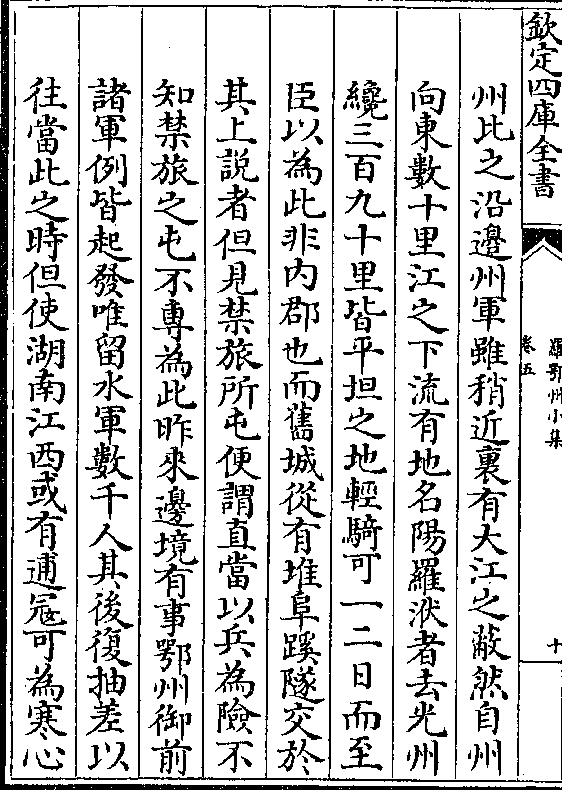 欽定四庫全書
羅鄂州小集
卷五
十
州比之沿邊州軍雖稍近裏有大江之蔽然自州
向東數十里江之下流有地名陽羅洑者去光州
纔三百九十里皆平坦之地輕騎可一二日而至
臣以為此非内郡也而舊城從有堆阜蹊隧交於
其上説者但見禁旅所屯便謂直當以兵為險不
知禁旅之屯不專為此昨來邊境有事鄂州御前
諸軍例皆起發唯留水軍數千人其後復抽差以
往當此之時但使湖南江西或有逋冦可為寒心